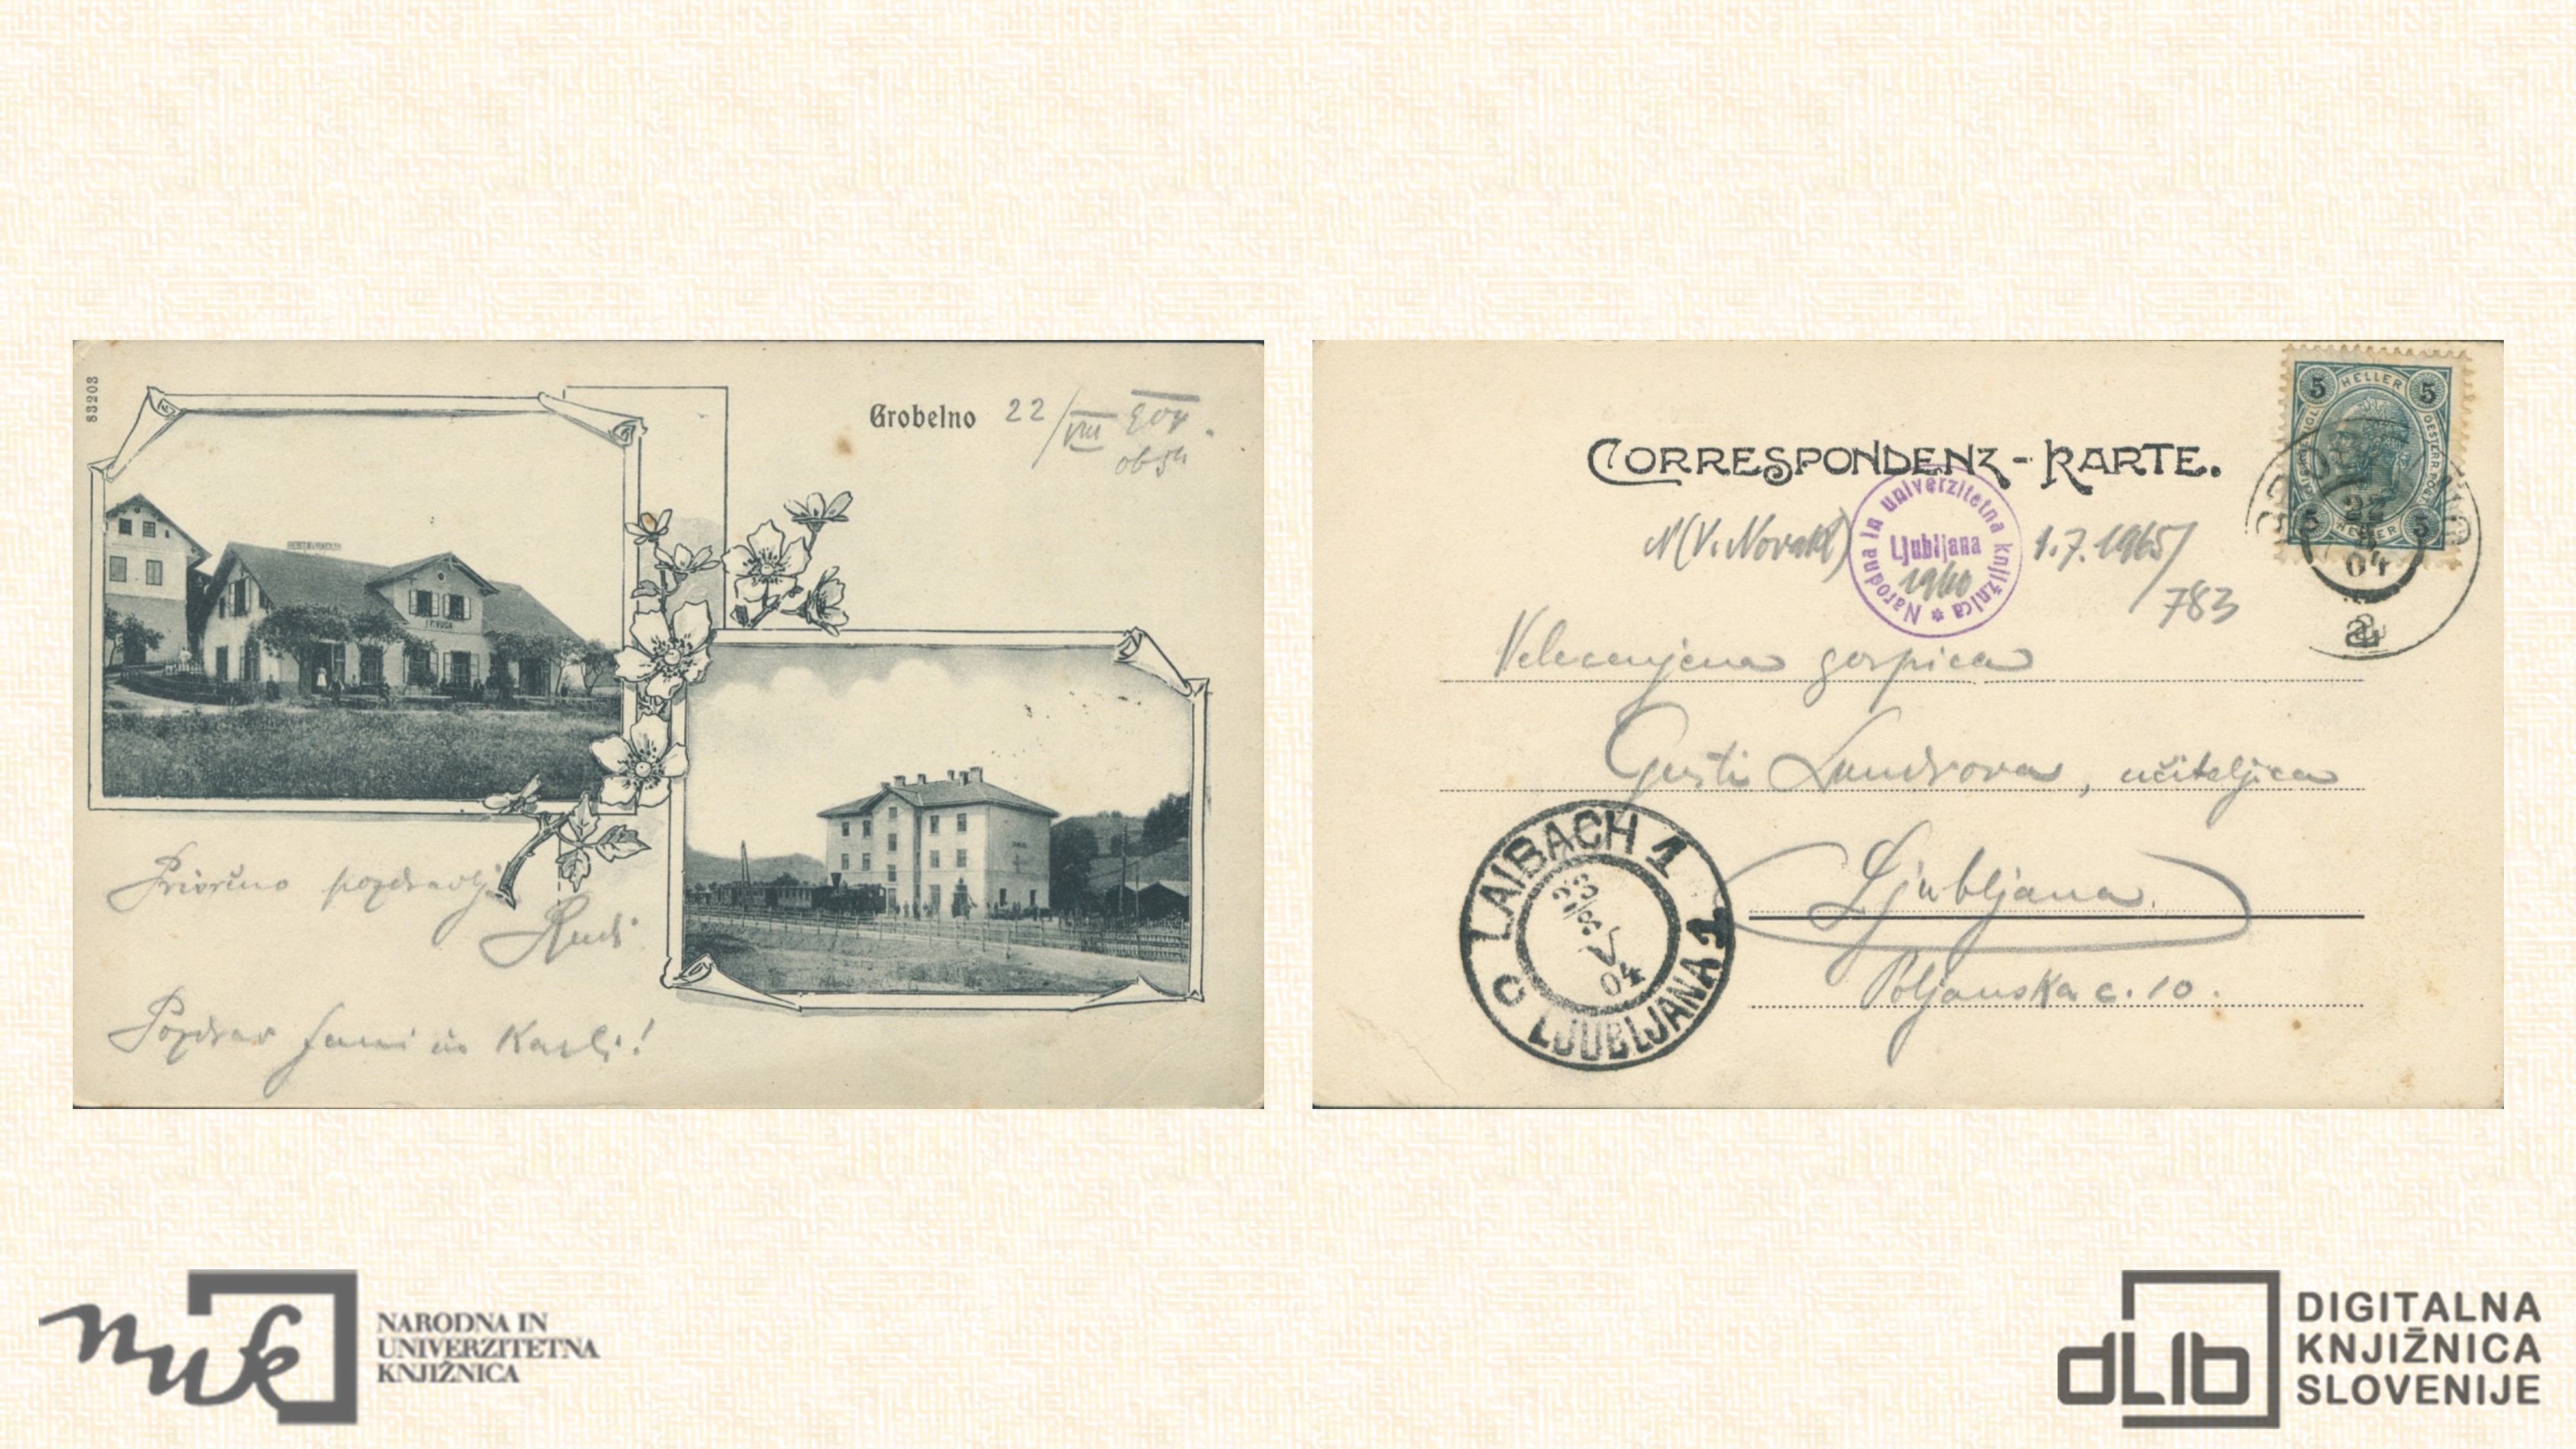 83203
Grobelno 22/VIII 904.
Prisrčno pozdravlja
Rudi
Pozdrav Fani in Karli!
CORRESPONDENZ-KARTE.
5 HELLER 5
5 HELLER 5
22
04
N(V. Novak) 1.7.1965/
783
Narodna in univerzitetna knjižnica
Ljubljana
1960
Velecenjena gospica
Gusti , učiteljica
Ljubljana.
Poljanska c. 10.
LAIBACH 1
23/8
V
04
C LJUBLJANA 1
nuk
NARODNA IN
UNIVERZITETNA
KNJIŽNICA
dLib
DIGITALNA
KNJIŽNICA
SLOVENIJE